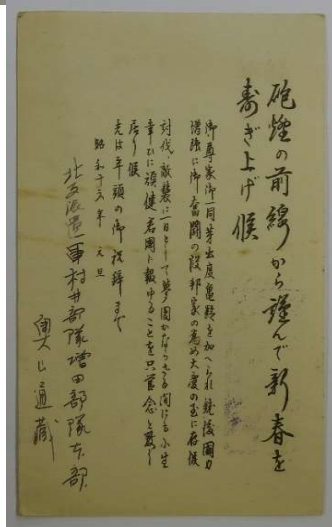 砲煙の前線から謹んで新春を
寿ぎ上げ候
御尊家御一同芽出度亀齢を加へられ銃後国力
増強に御奮闘の段邦家の為め大慶の至に存候
討伐、敵襲に一日として夢円かならざる間にも小生
幸ひに頑健君国に報ゆることを只管念と致し
居り候
先は年頭の御祝辞まで
昭和十六年 元旦
北支派遣 軍村井部隊増田部隊本部
奥山通蔵